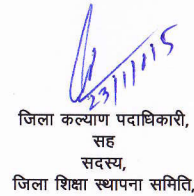 23/11/15
जिला कल्याण पदाधिकारी,
सह
सदस्य,
जिला शिक्षा स्थापना समिति,